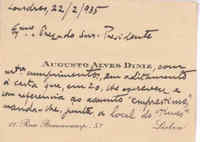 Londres, 22/2/935
Exmo Snr. Presidente
AUGUSTO ALVES DINIZ, com
cumprimentos, em aditamento
á carta que, em 20, lhe escreveu e
com referencia ao assunto "emprestimo,"
manda-lhe, junto, o local do "Times"
11, Rua Braamcamp, 5º
Lisboa